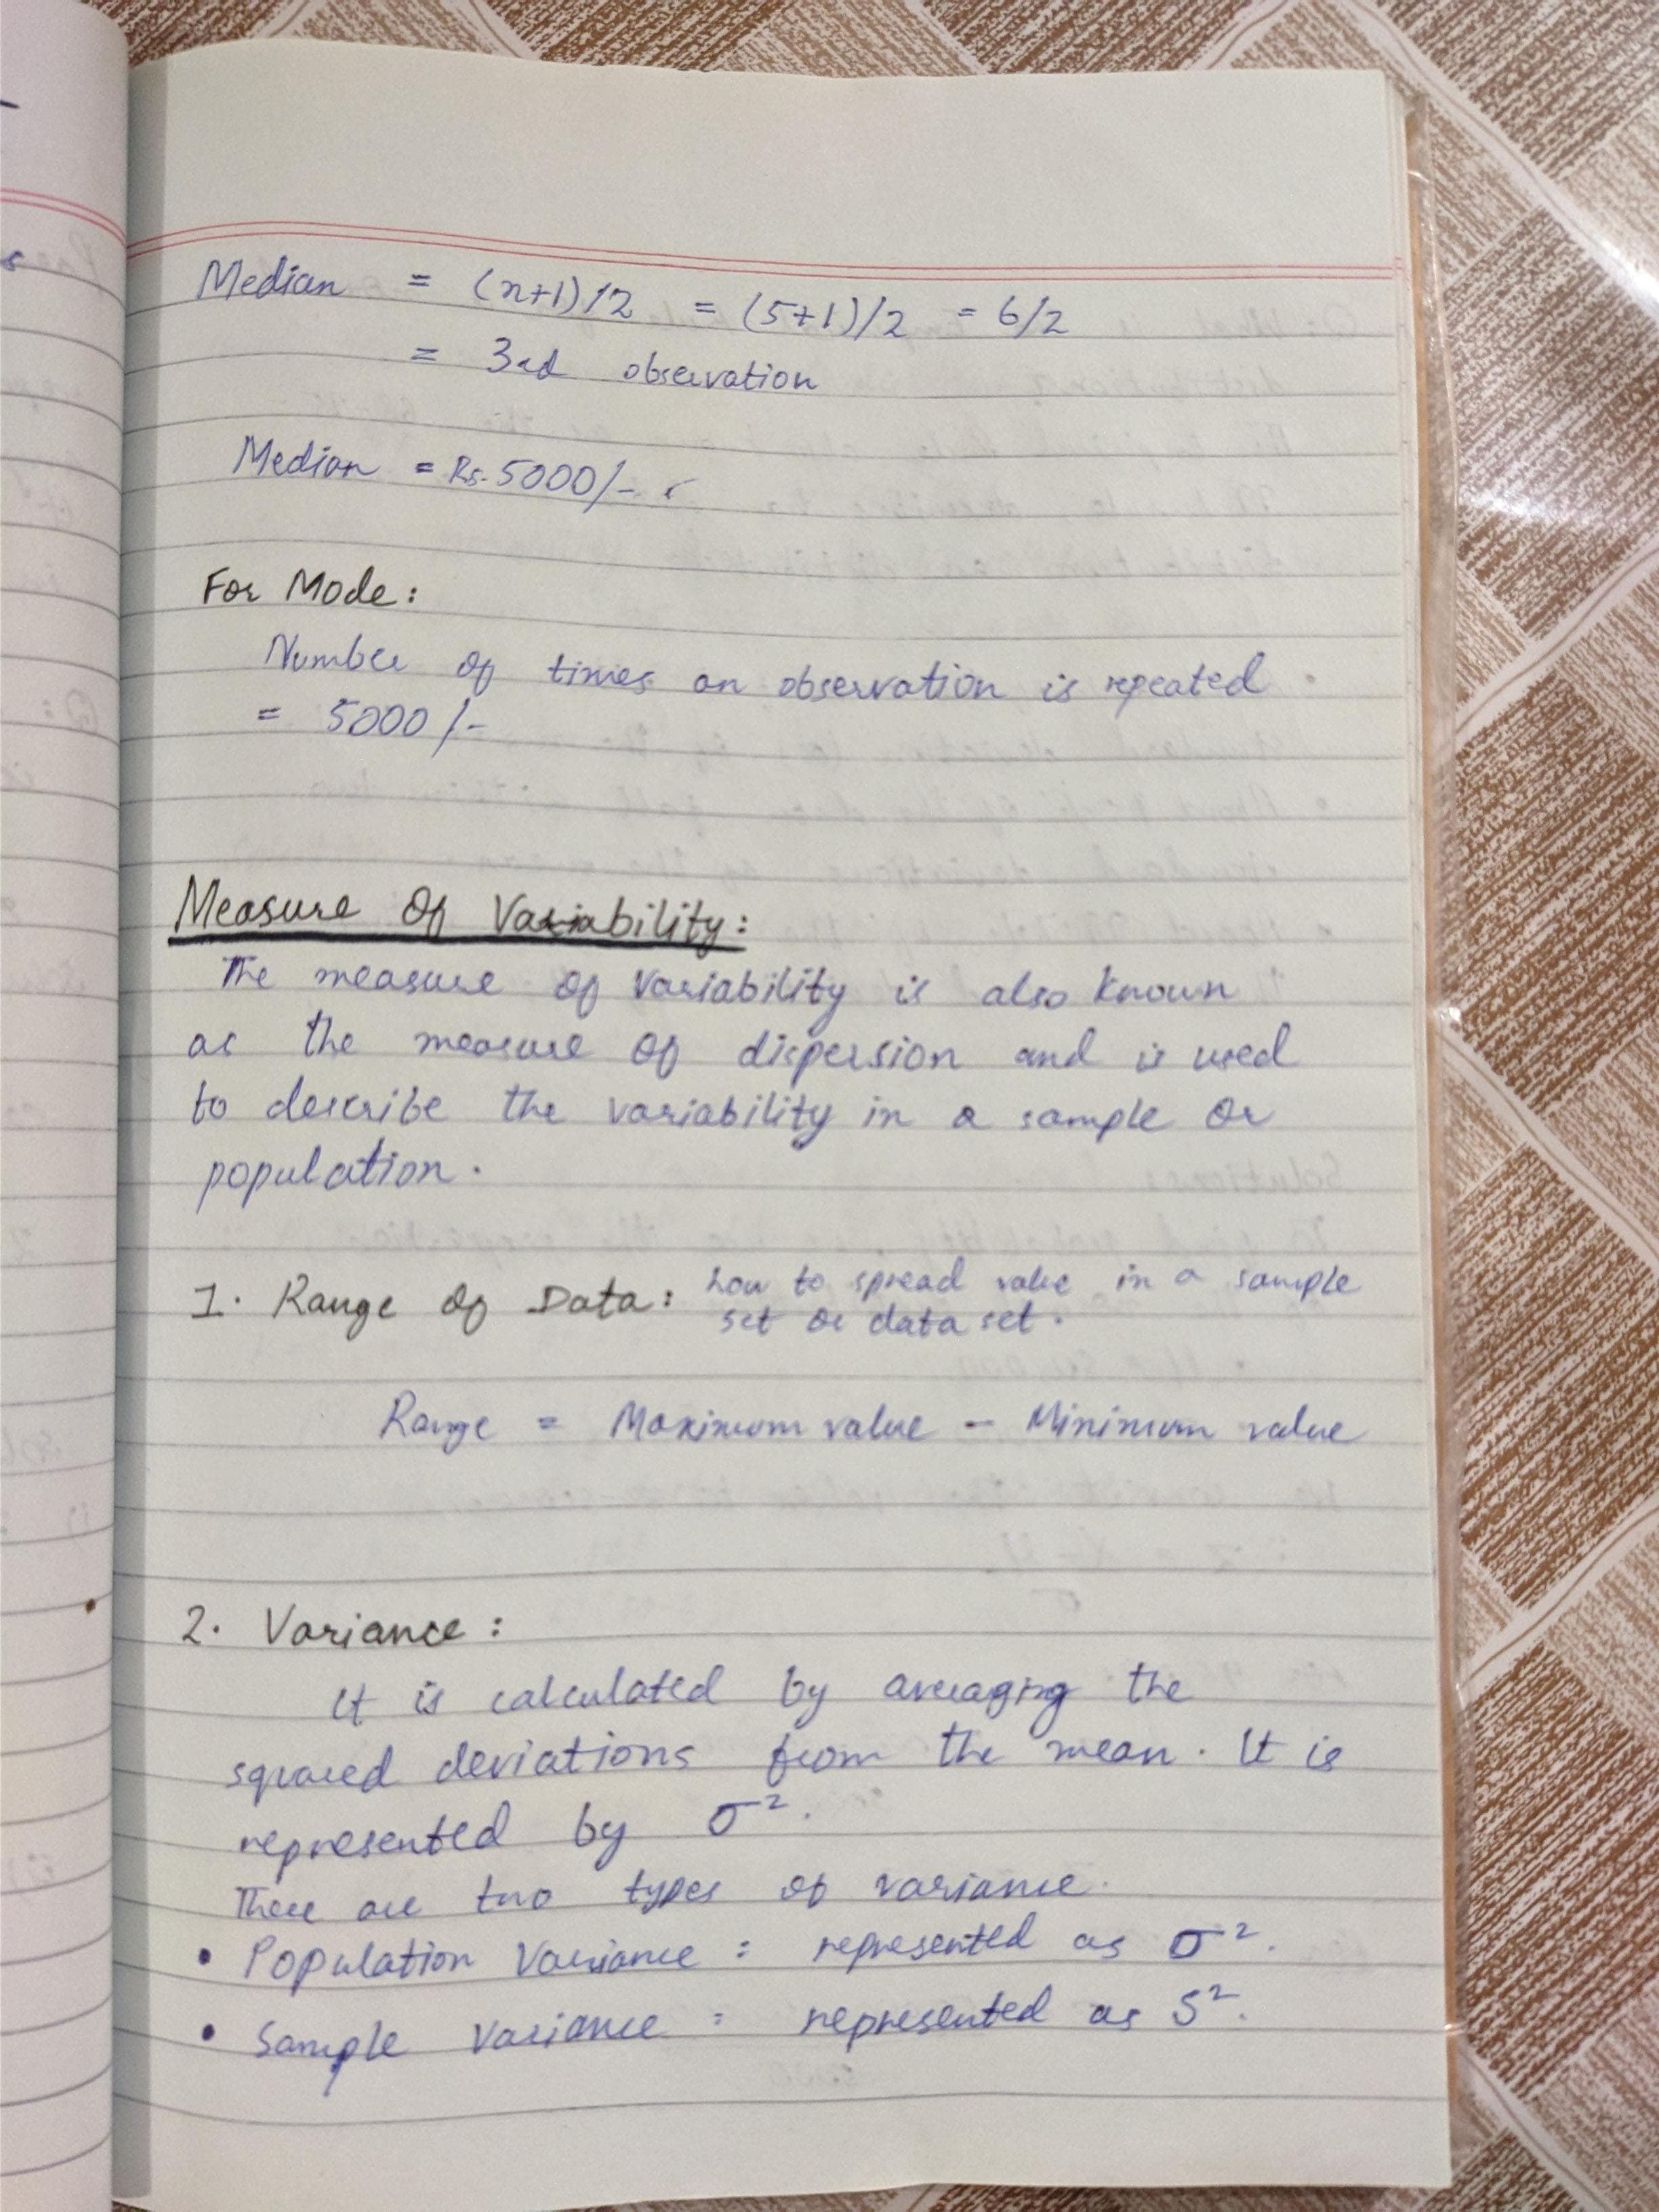 Median = (n+1)/2 = (5+1)/2 = 6/2
= 3rd observation
Median = Rs. 5000/-
For Mode:
Number of times an observation is repeated.
= 5000/-
Measure Of Variability:
The measure of variability is also known
as the measure of dispersion and is used
to describe the variability in a sample or
population.
1. Range of Data: how to spread value in a sample
set or data set.
Range = Maximum value - Minimum value
2. Variance:
It is calculated by averaging the
squared deviations from the mean. It is
represented by σ².
There are two types of variance.
• Population Variance : represented as σ².
• Sample Variance : represented as S².